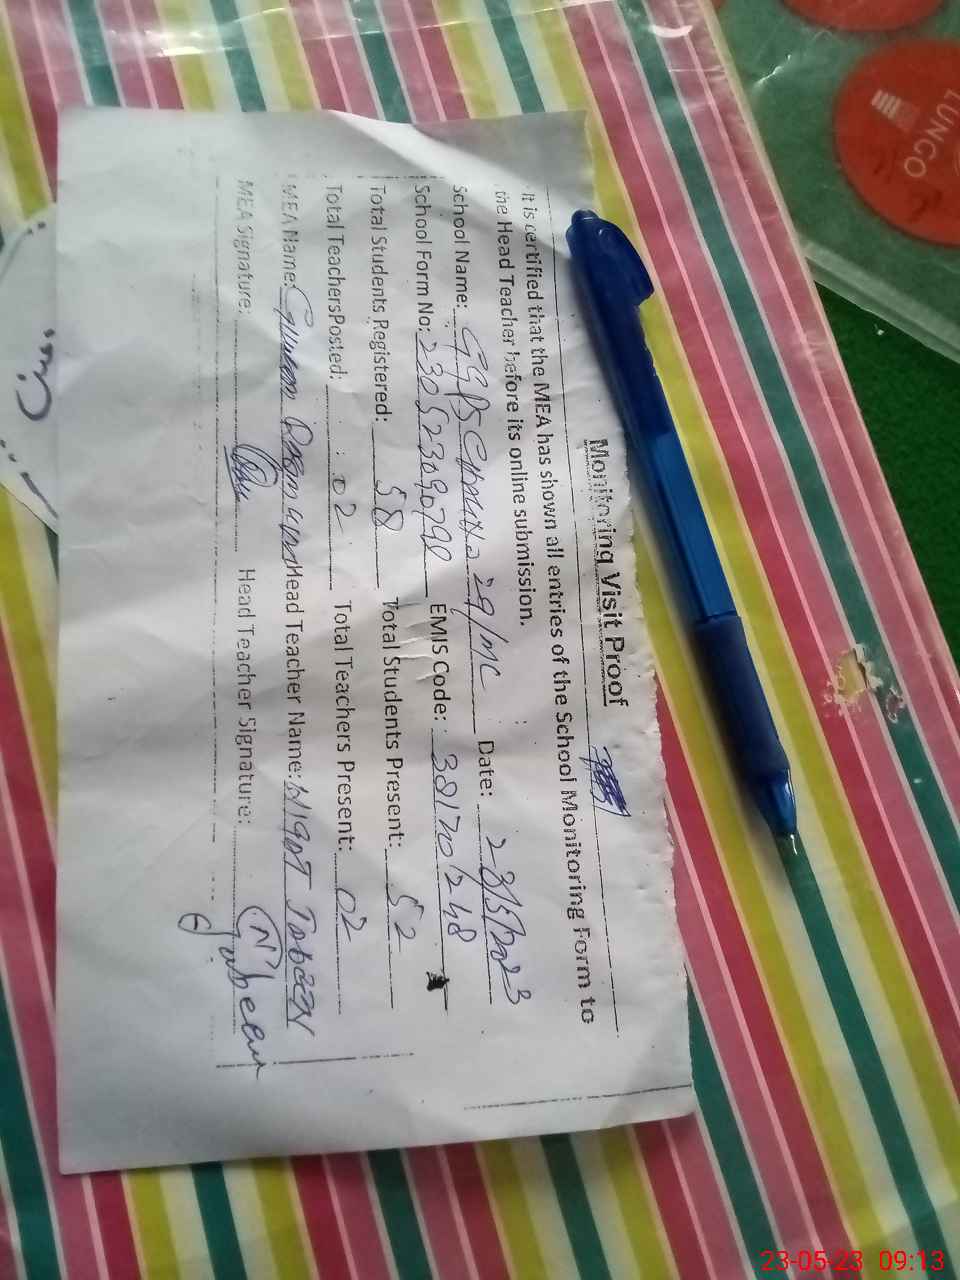 Monitoring Visit Proof
It is certified that the MEA has shown all entries of the School Monitoring Form to
the Head Teacher before its online submission.
School Name: GGPS 29/MC Date: 23/5/2023
School Form No: 230523090798 EMIS Code: 38170248
Total Students Registered: 58 Total Students Present: 52
Total Teachers Posted: 02 Total Teachers Present: 02
MEA Name: Head Teacher Name: Tabeen
MEA Signature: Head Teacher Signature: Tabeen
LUNGO
23-05-23 09:13